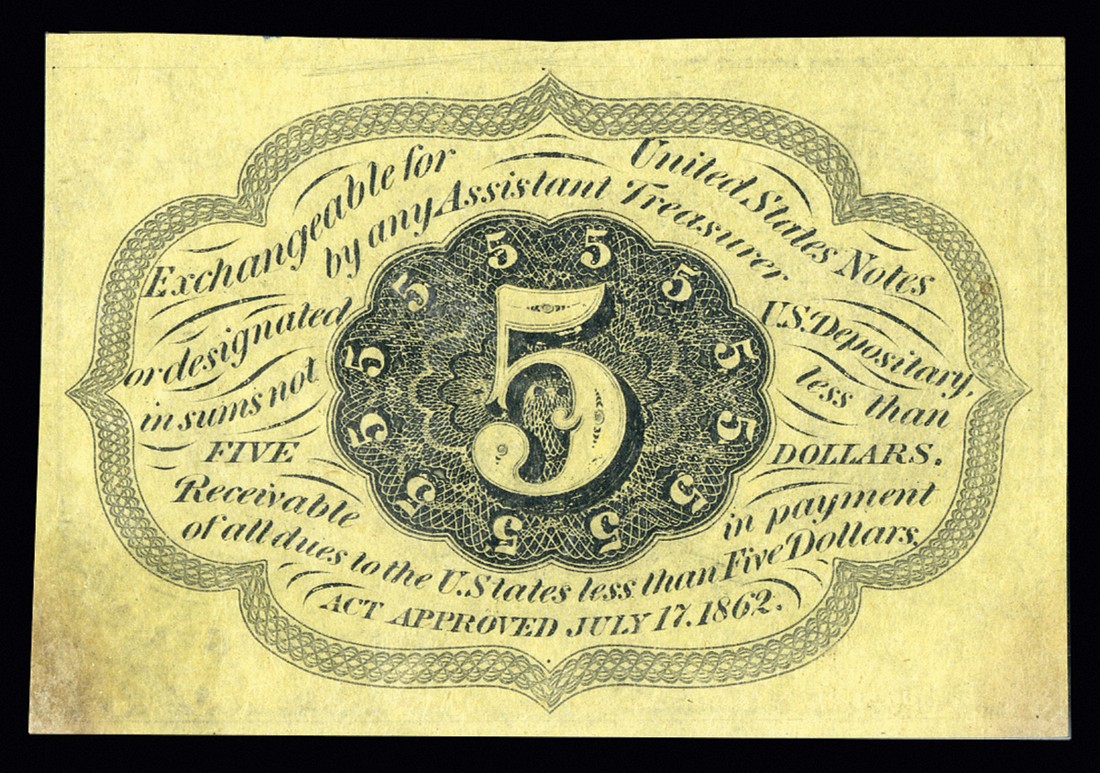 Exchangeable for United States Notes
by any Assistant Treasurer
or designated U.S. Depositary,
in sums not less than
FIVE DOLLARS.
Receivable in payment
of all dues to the U. States less than Five Dollars.
ACT APPROVED JULY 17. 1862.
5
5 5 5 5 5 5 5 5 5 5 5 5